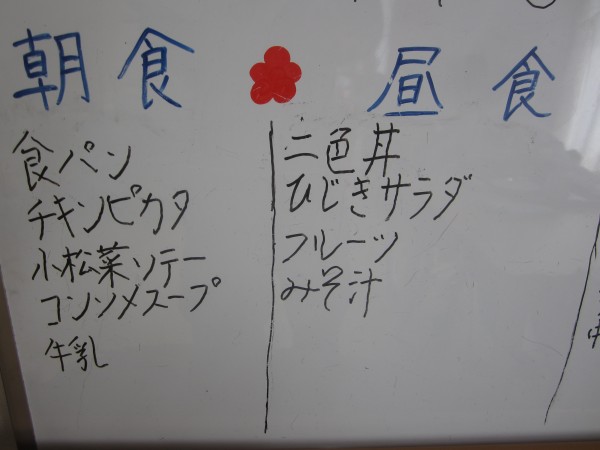 朝食
食パン
チキンピカタ
小松菜ソテー
コンソメスープ
牛乳
昼食
二色丼
ひじきサラダ
フルーツ
みそ汁